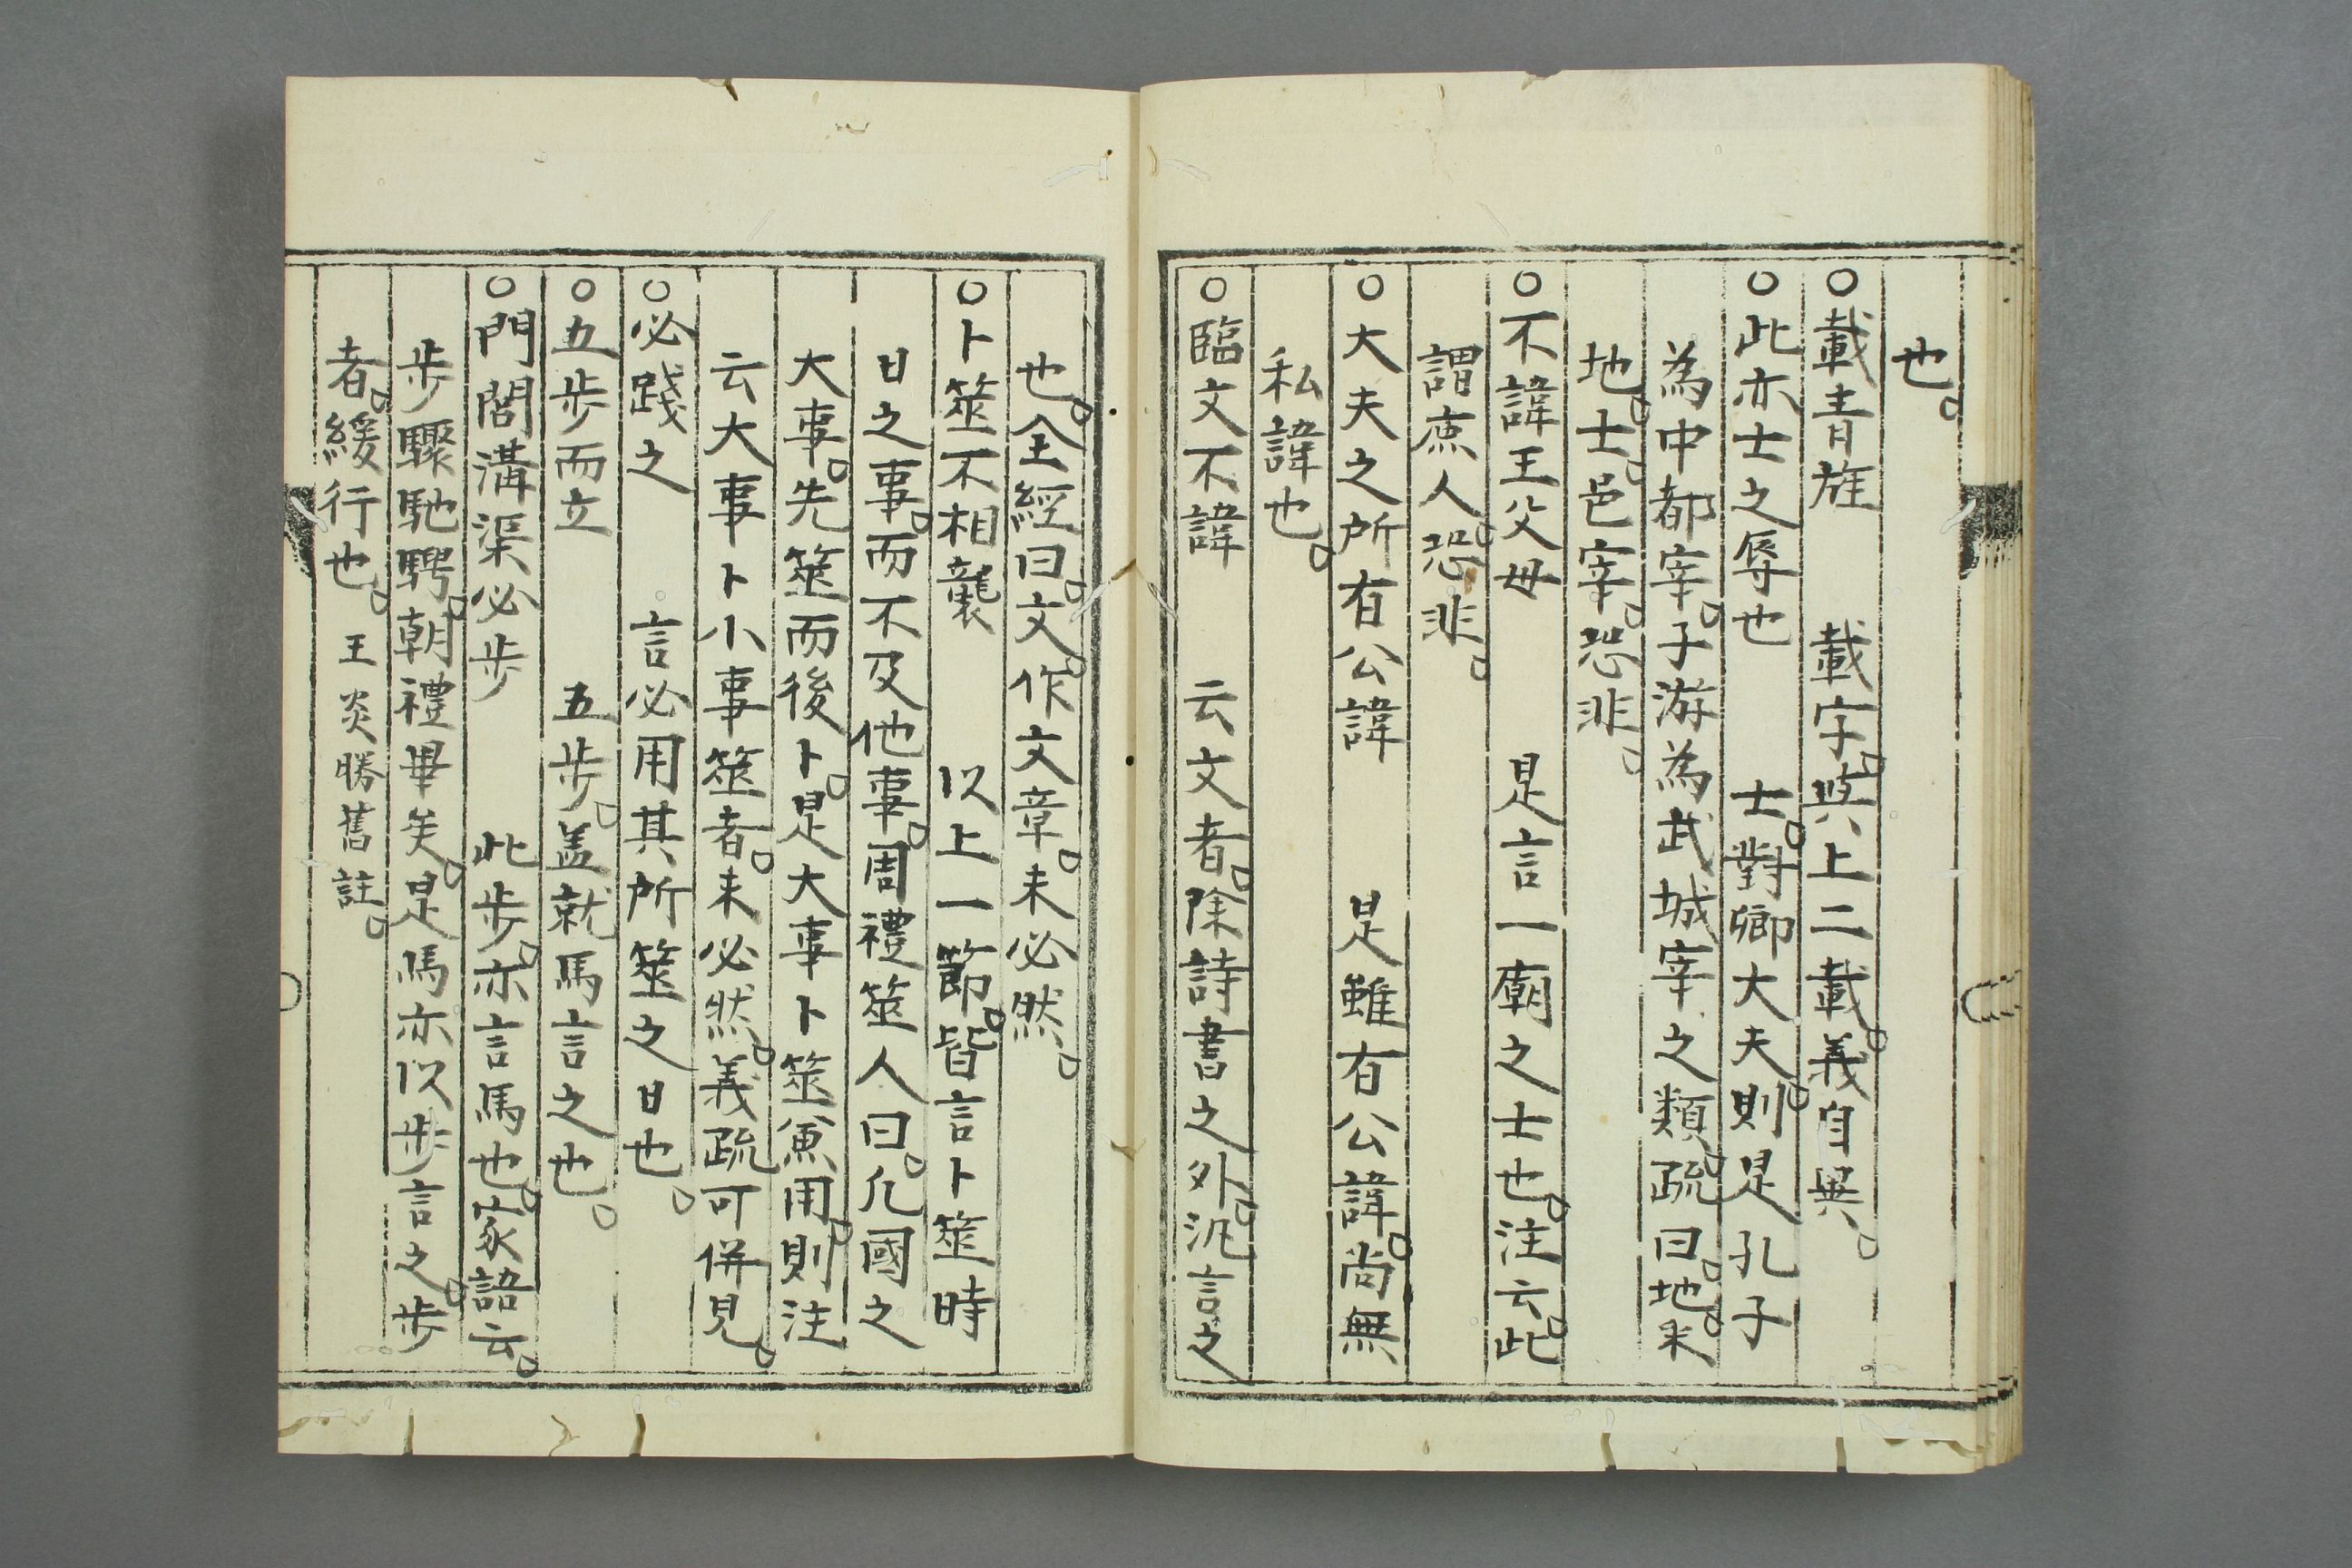 也。
○載青旌　載字。與上二載。義自異。
○此亦士之辱也　士。對卿大夫。則是孔子
為中都宰。子游為武城宰之類。疏曰。地。采
地。士。邑宰。恐非。
○不諱王父母　是言一廟之士也。注云。此
謂庶人。恐非。
○大夫之所有公諱　是雖有公諱。尚無
私諱也。
○臨文不諱　云文者。除詩書之外。汎言之
也。全經曰。文。作文章。未必然。
○卜筮不相襲　以上一節。皆言卜筮時
日之事。而不及他事。周禮筮人曰。凡國之
大事。先筮而後卜。是大事卜筮兼用。則注
云大事卜小事筮者。未必然。義疏可併見。
○必踐之　言必用其所筮之日也。
○五步而立　五步。盖就馬言之也。
○門閭溝渠必步　此步。亦言馬也。家語云。
步驟馳騁。朝禮畢矣。是馬亦以步言之。步
者。緩行也。王炎勝舊註。